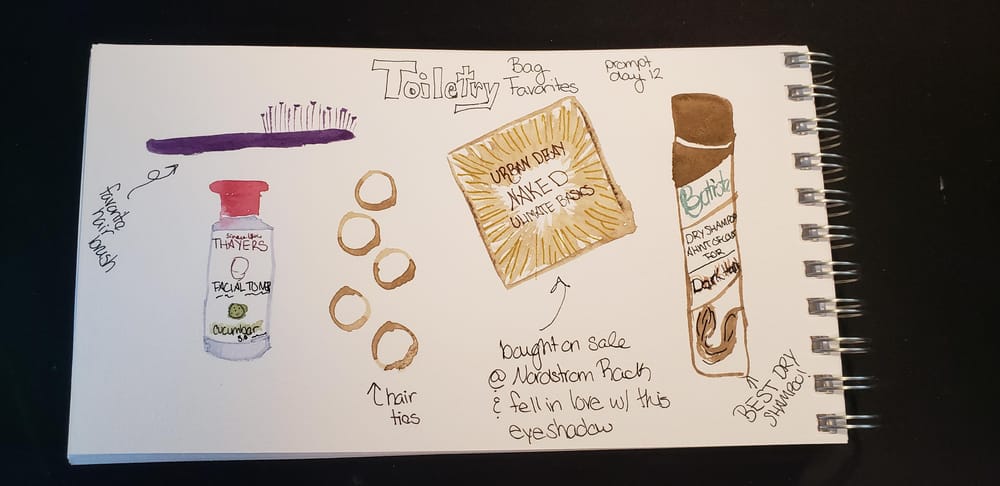 Toiletry Bag Favorites
prompt
day 12
favorite
hair
brush
since 1847
THAYERS
FACIAL TONER
cucumber
hair
ties
URBAN DECAY
NAKED
ULTIMATE BASICS
bought on sale
@ Nordstrom Rack
& fell in love w/ this
eyeshadow
Batiste
DRY SHAMPOO
A HINT OF COLOR
FOR
Dark Hair
BEST DRY
SHAMPOO!